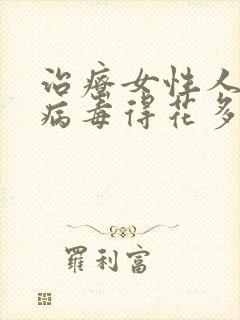 治療女性人
病毒得花多
羅利富